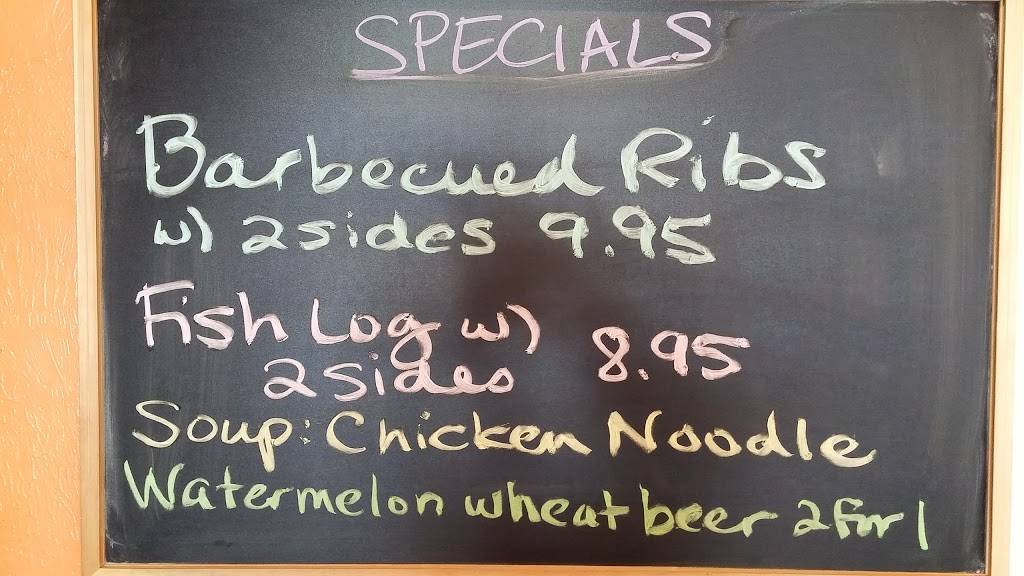 SPECIALS
Barbecued Ribs
w) 2 sides 9.95
Fish Log w)
2 sides 8.95
Soup: Chicken Noodle
Watermelon wheat beer 2 for 1